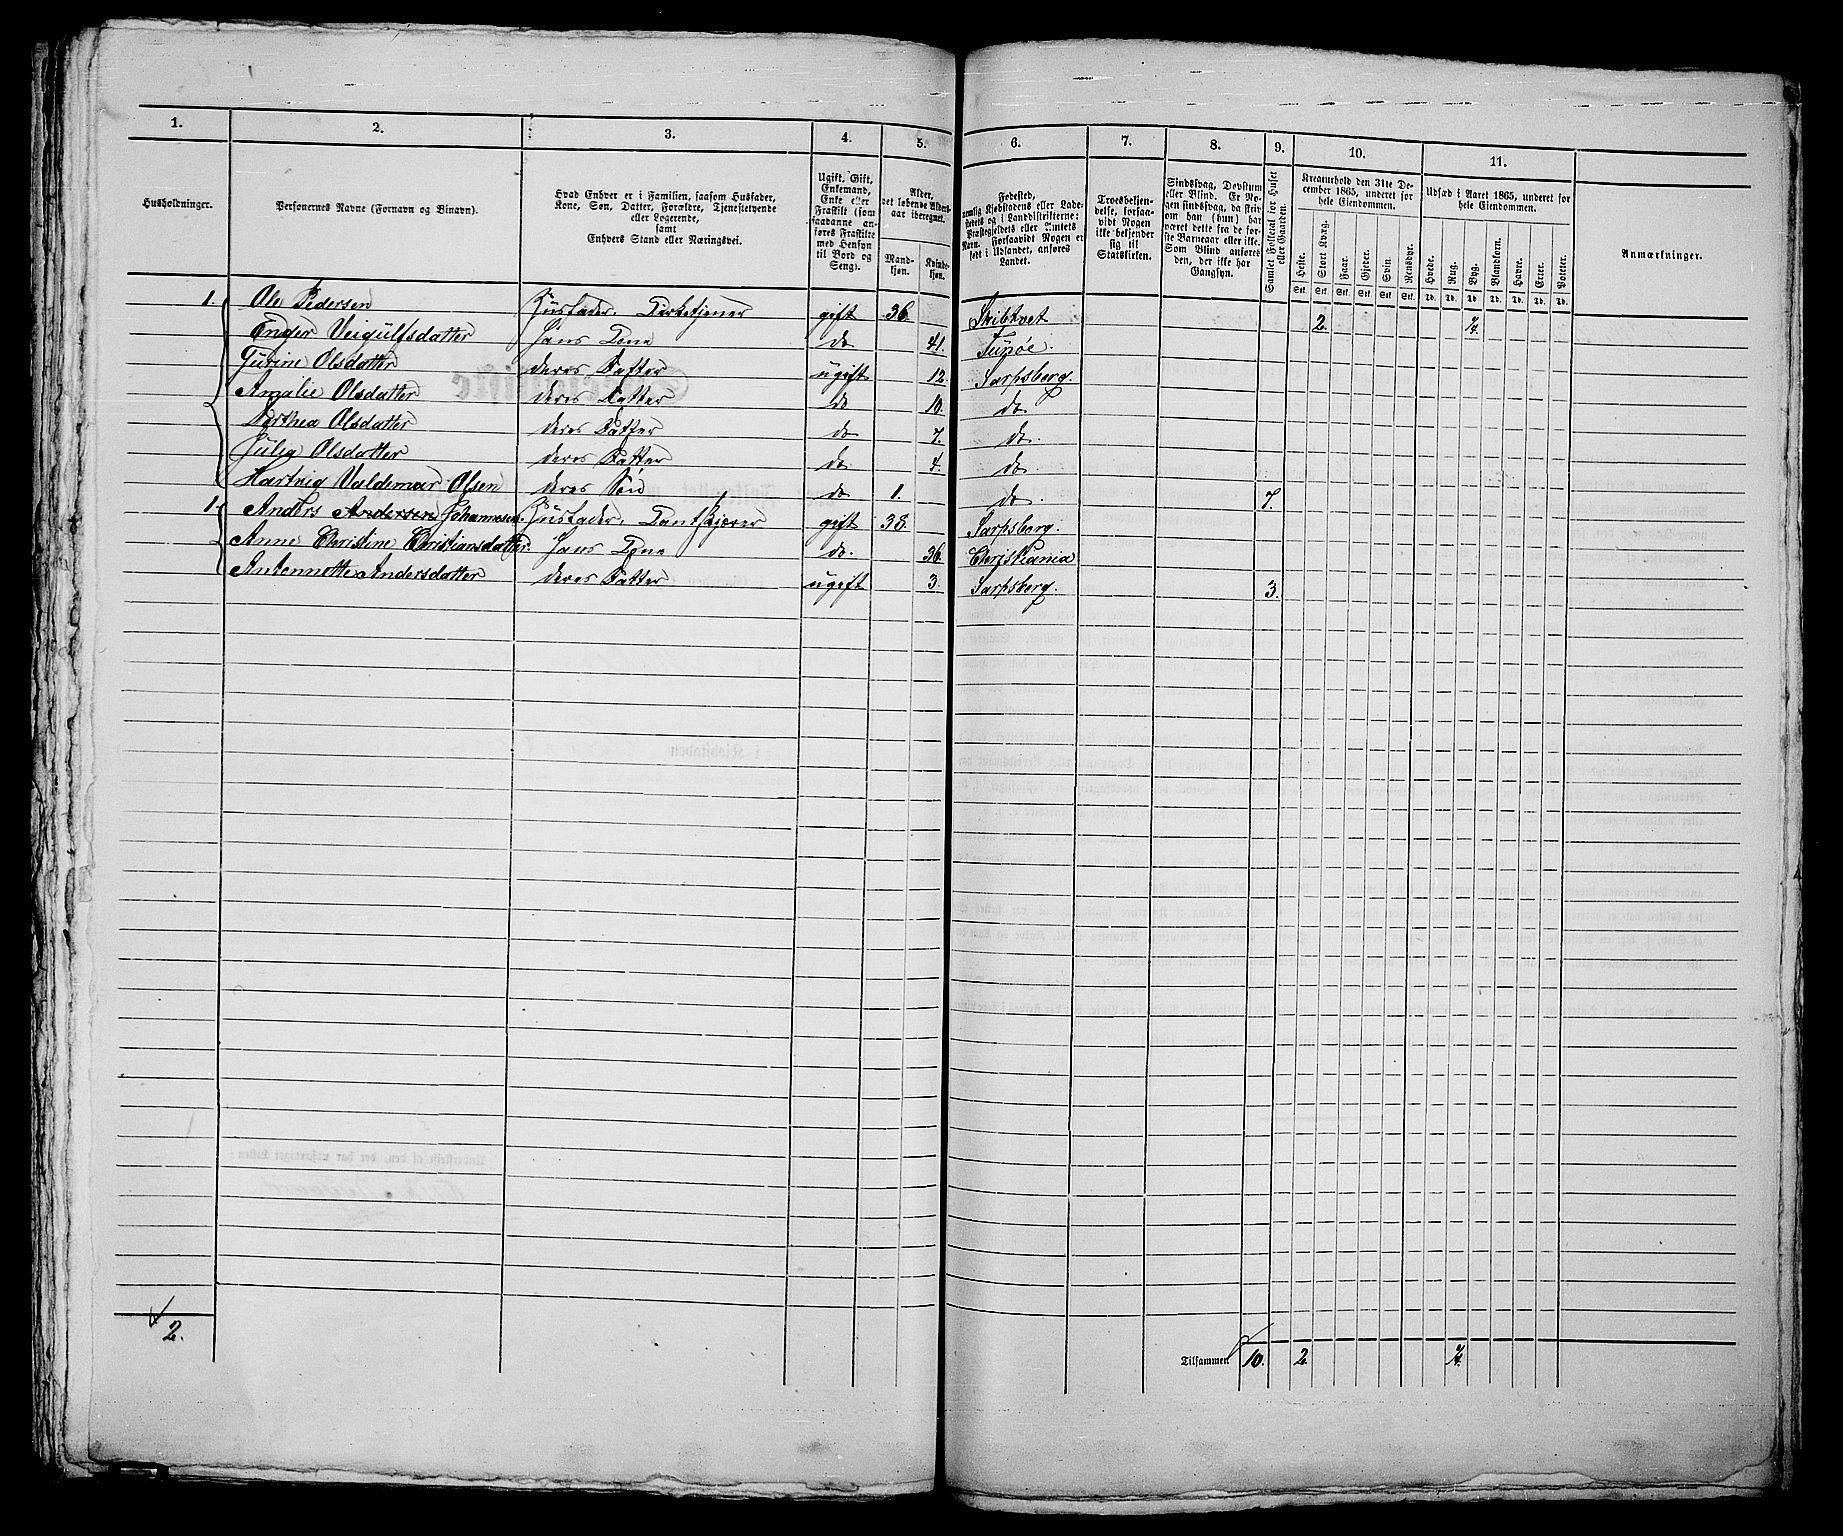 1. 2. 3. 4. 5. 6. 7. 8. 9. 10. 11.
Husholdninger.
Personernes Navne (Fornavn og Binavn).
Hvad Enhver er i Familien, saasom Husfader,
Kone, Søn, Datter, Forældre, Tjenestetyende
eller Logerende,
samt
Enhvers Stand eller Næringsvei.
Ugift, Gift,
Enkemand,
Enke eller
Fraskilt (som
saadanne an-
føres Fraskilte
med Hensyn
til Bord og
Seng).
Alder,
det løbende Alders-
aar iberegnet.
Mand-
kjøn.
Kvinde-
kjøn.
Fødested,
nemlig Kjøbstadens eller Lade-
stedets og i Landdistrikterne:
Præstegjeldets eller Amtets
Navn. Forsaavidt Nogen er
født i Udlandet, anføres
Landet.
Troesbekjen-
delse, forsaa-
vidt Nogen
ikke bekjender
sig til
Statskirken.
Sindssvag, Døvstum
eller Blind. Er No-
gen sindssvag, da skriv
om han (hun) har
været dette fra de før-
ste Barneaar eller ikke.
Som Blind anføres
den, der ikke har
Gangsyn.
Samlet Folketal for Huset
eller Gaarden.
Kreaturhold den 31te De-
cember 1865, underet for
hele Eiendommen.
Heste. Stort Kvæg. Faar. Gjeder. Svin. Rensdyr.
Stk. Stk. Stk. Stk. Stk. Stk.
Udsæd i Aaret 1865, underet for
hele Eiendommen.
Hvede. Rug. Byg. Blandkorn. Havre. Erter. Poteter.
Td. Td. Td. Td. Td. Td. Td.
Anmærkninger.
1. Ole Pedersen Husfader. Kirketjener gift 36. Skibtvet 2.
Enger Veigulfsdatter Hans Kone do 41. Tunøe.
Gurine Olsdatter deres Datter ugift 12 Sarpsborg.
Amalie Olsdatter deres Datter do 10. do
Dorthea Olsdatter deres Datter do 7. do.
Julia Olsdatter deres Datter do. 4. do.
Hartvig Valdemar Olsen deres Søn do 1. do. 7.
1. Anders Andersen Johannesen. Husfader. gift 38. Sarpsborg.
Anne Christine Christiansdatter. Hans Kone do. 36. Christiania
Antennette Andersdatter deres Datter ugift 3. Sarpsborg. 3.
2.
Tilsammen 10. 2